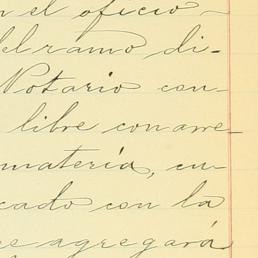 n el oficio
del ramo di-
Notario con-
libre con arre-
materia, cu-
cado con la
se agregará